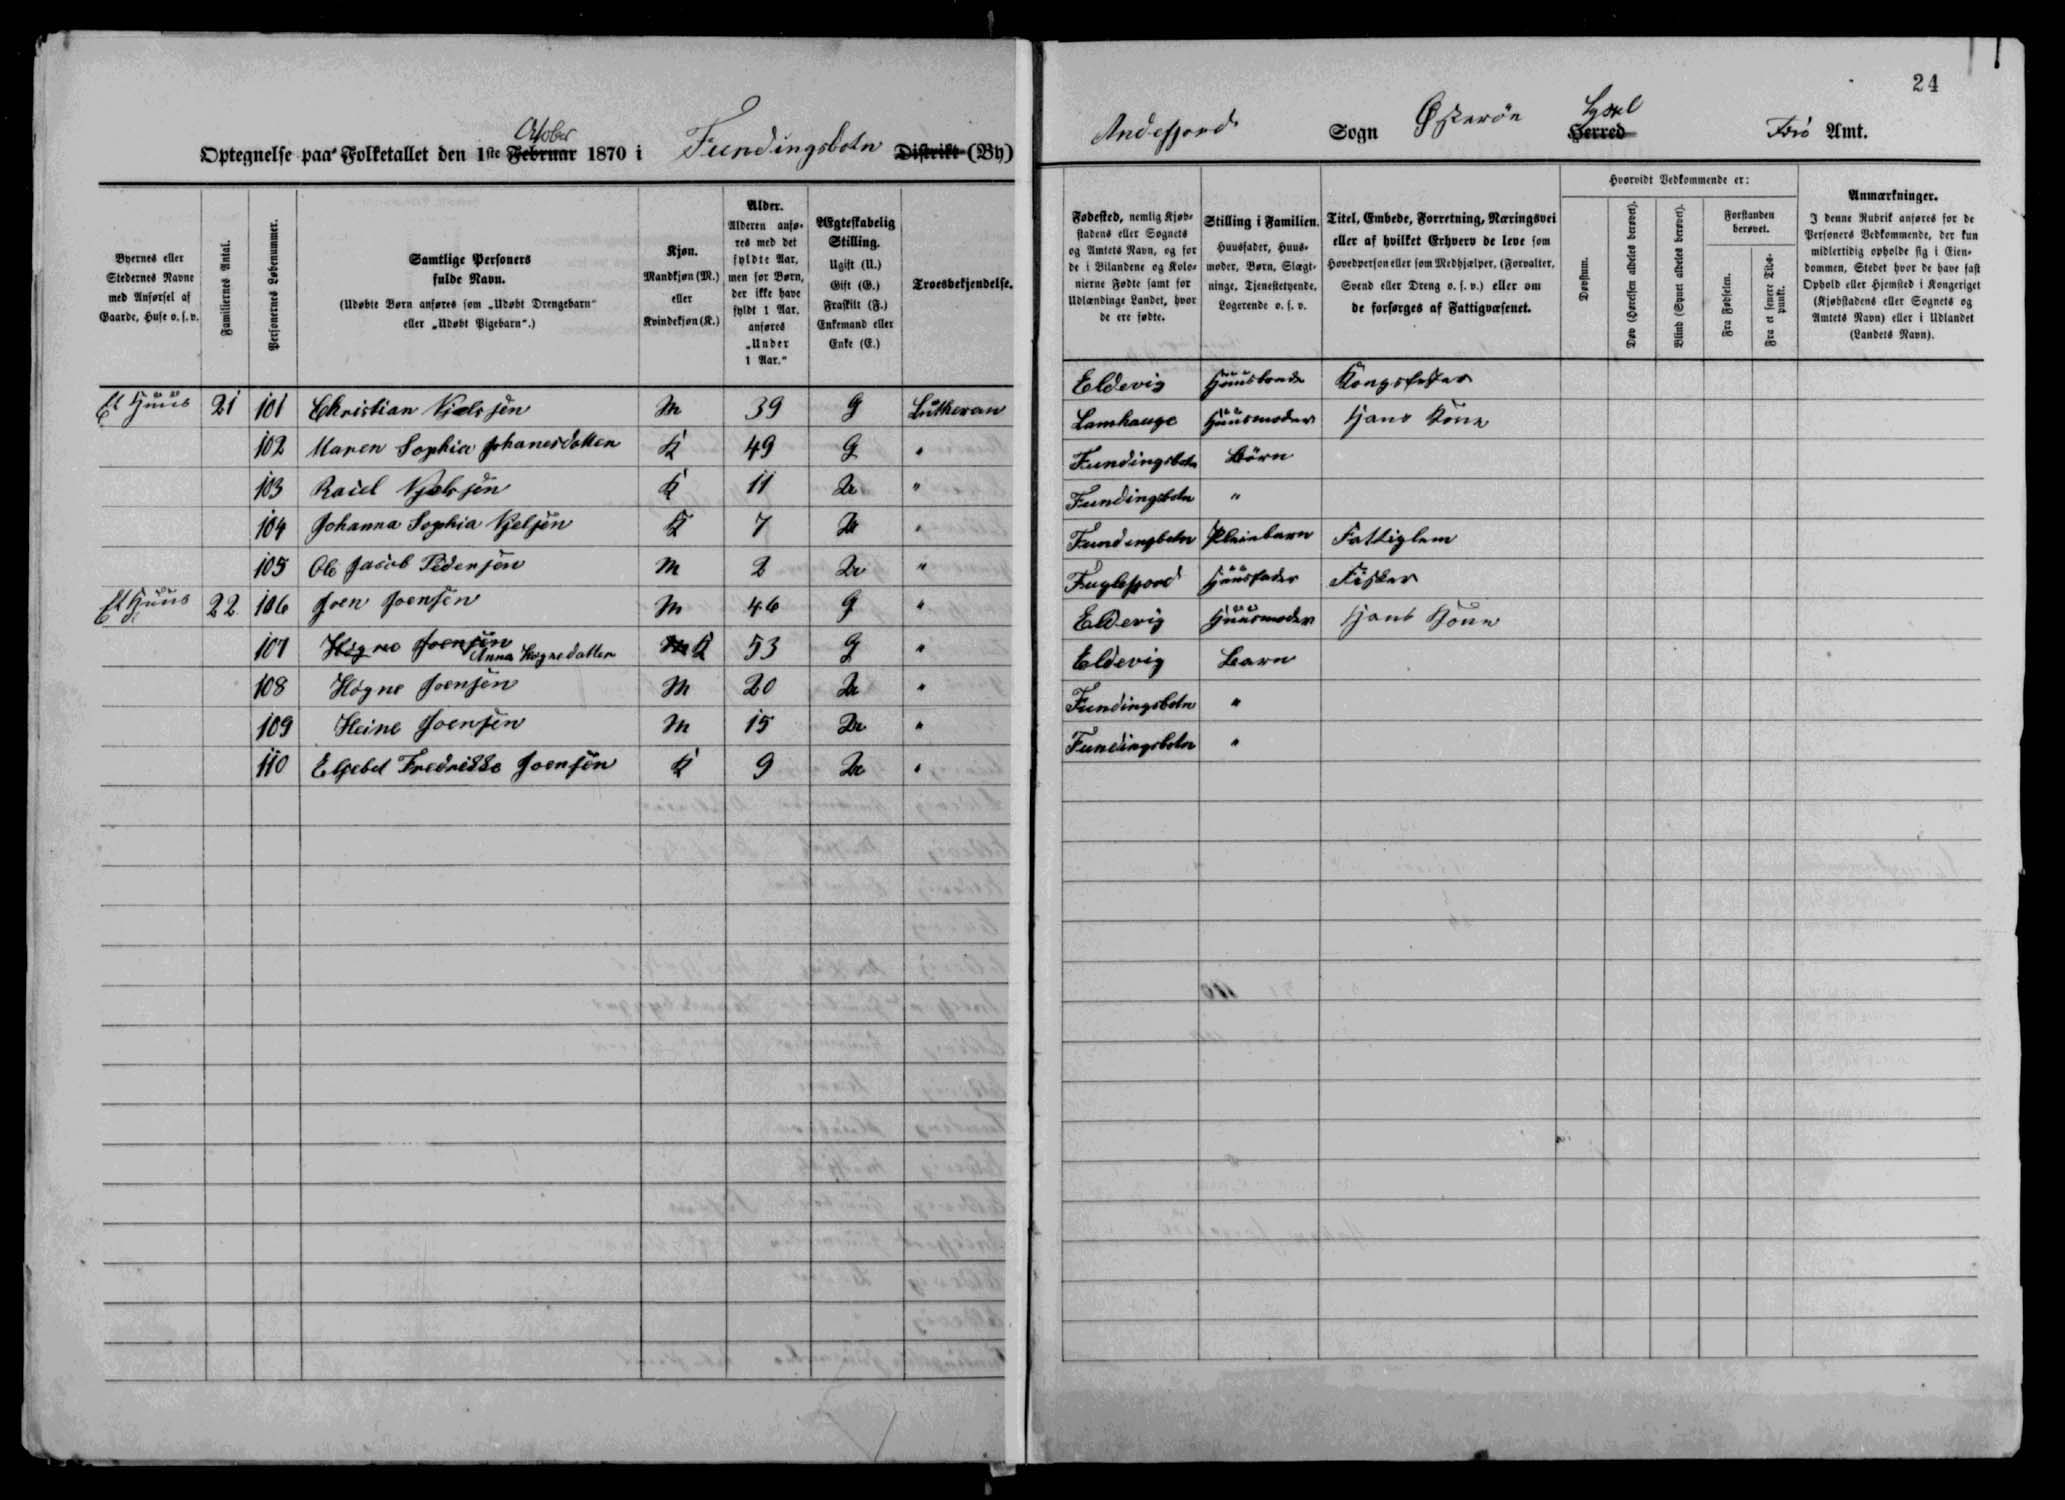 24
October
Optegnelse paa Folketallet den 1ste Februar 1870 i Fundingsbotn Distrikt (By)
Andefjord Sogn Østerön Sysel Herred Færø Amt.
Byernes eller Stedernes Navne med Anførsel af Gaarde, Huse o. s. v.
Familiernes Antal.
Personernes Løbenummer.
Samtlige Personers fulde Navn.
(Udøbte Børn anføres som „Udøbt Drengebarn“ eller „Udøbt Pigebarn“.)
Kjøn.
Mandkjøn (M.) eller Kvindekjøn (K.)
Alder.
Alderen anføres med det fyldte Aar, men for Børn, der ikke have fyldt 1 Aar, anføres „Under 1 Aar.“
Ægteskabelig Stilling.
Ugift (U.) Gift (G.) Fraskilt (F.) Enkemand eller Enke (E.)
Troesbekjendelse.
Fødested, nemlig Kjøbstadens eller Sognets og Amtets Navn, og for de i Bilandene og Kolonierne Fødte samt for Udlændinge Landet, hvor de ere fødte.
Stilling i Familien.
Huusfader, Huusmoder, Børn, Slægtninge, Tjenestetyende, Logerende o. s. v.
Titel, Embede, Forretning, Næringsvei eller af hvilket Erhverv de leve som Hovedperson eller som Medhjælper, (Forvalter, Svend eller Dreng o. s. v.) eller om de forsørges af Fattigvæsenet.
Hvorvidt Vedkommende er:
Døvstum.
Døv (Hørelsen aldeles berøvet).
Blind (Synet aldeles berøvet).
Forstanden berøvet.
Fra Fødselen.
Fra et senere Tidspunkt.
Anmærkninger.
I denne Rubrik anføres for de Personers Vedkommende, der kun midlertidig opholde sig i Eiendommen, Stedet hvor de have fast Ophold eller Hjemsted i Kongeriget (Kjøbstadens eller Sognets og Amtets Navn) eller i Udlandet (Landets Navn).
Et Huus 21 101 Christian Njelsjen M 39 G Lutheran Eldevig Huusbonde Kongsfæster
102 Maren Sophia Johanesdatter K 49 G " Lamhauge Huusmoder Hans Kone
103 Raiel Njelsjen K 11 U " Fundingsbotn Börn
104 Johanna Sophia Njelsjen K 7 U " Fundingsbotn "
105 Ole Jacob Pedersjen M 2 U " Fundingbotn Pleiebarn Fattiglem
Et Huus 22 106 Joen Joensen M 46 G " Fuglefjord Huusfader Fisker
107 Högne Joensen Anna Högnedatter M K 53 G " Eldevig Huusmoder Hans Kone
108 Högne Joensen M 20 U " Eldevig Barn
109 Heine Joensen M 15 U " Fundingsbotn "
110 Elsebet Fredrikke Joensen K 9 U " Fundingsbotn "